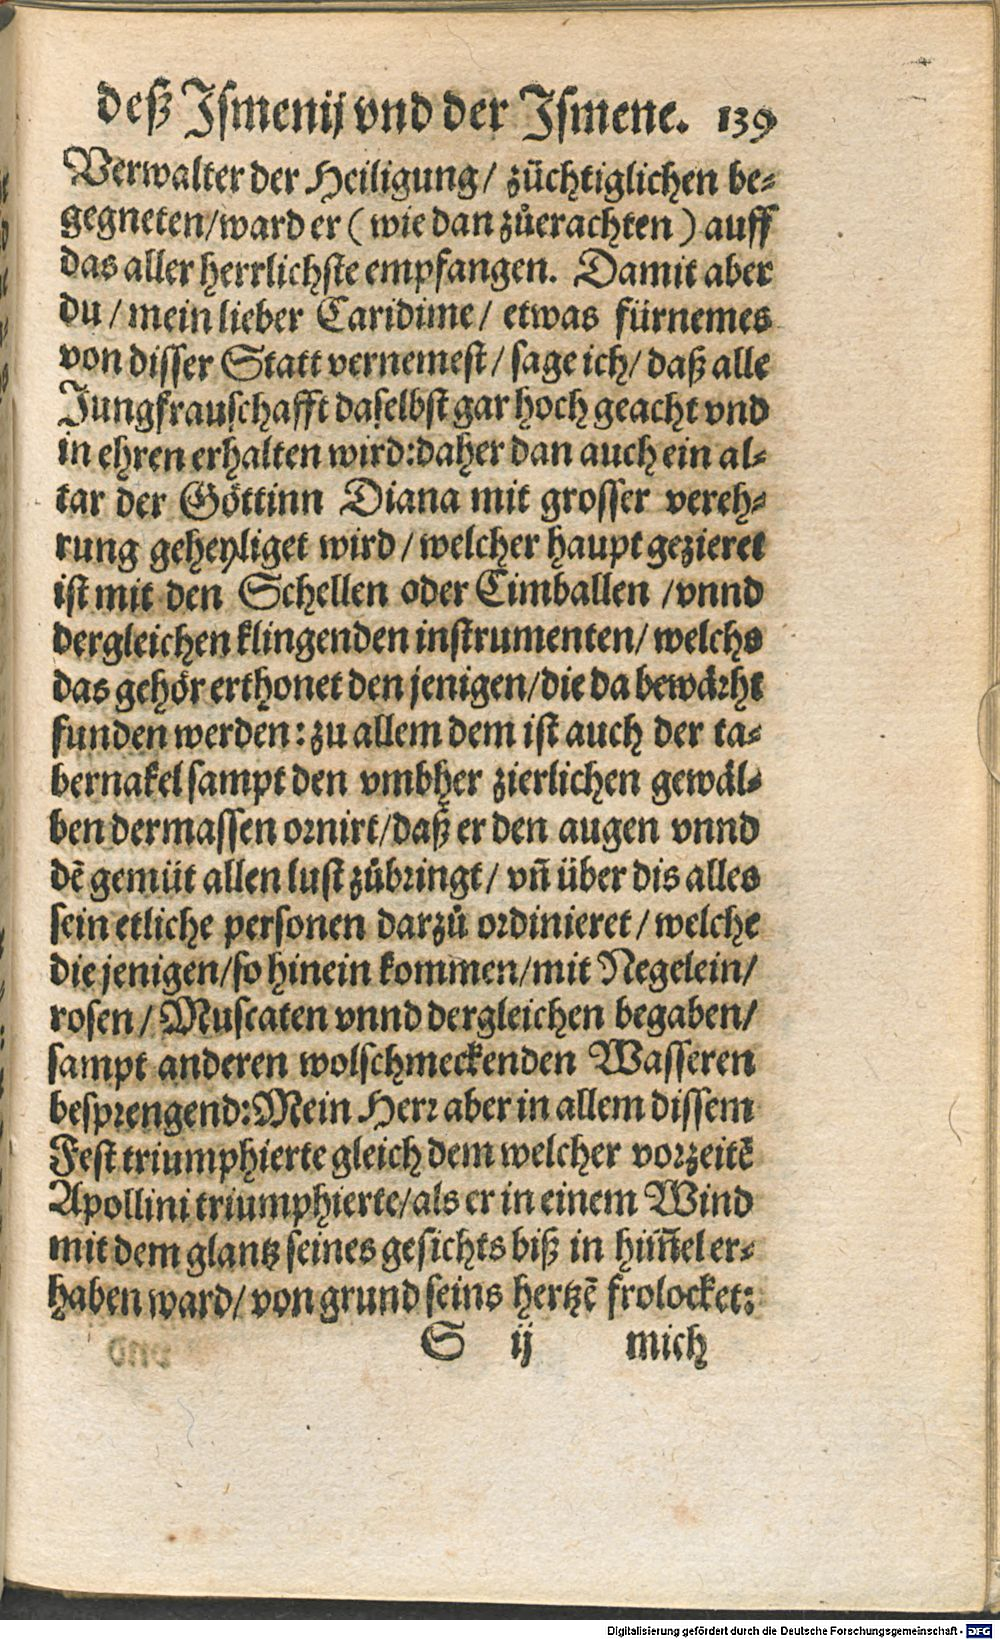 deß Ismenij vnd der Ismene. 139
Verwalter der Heiligung/ züchtiglichen be-
gegneten/ward er (wie dan zůerachten) auff
das aller herrlichste empfangen. Damit aber
du/mein lieber Caridime/ etwas fürnemes
von disser Statt vernemest/sage ich/daß alle
Jungfrauschafft daselbst gar hoch geacht vnd
in ehren erhalten wird:daher dan auch ein al-
tar der Göttinn Diana mit grosser vereh-
rung geheyliget wird/welcher haupt gezieret
ist mit den Schellen oder Cimballen /vnnd
dergleichen klingenden instrumenten/welchs
das gehör erthonet den jenigen/die da bewärht
funden werden: zu allem dem ist auch der ta-
bernakel sampt den vmbher zierlichen gewäl-
ben dermassen ornirt/daß er den augen vnnd
dē gemüt allen lust zůbringt/vñ über dis alles
sein etliche personen darzů ordinieret/welche
die jenigen/so hinein kommen/mit Negelein/
rosen/Muscaten vnnd dergleichen begaben/
sampt anderen wolschmeckenden Wasseren
besprengend:Mein Herr aber in allem dissem
Fest triumphierte gleich dem welcher vorzeitē
Apollini triumphierte/als er in einem Wind
mit dem glantz seines gesichts biß in him̄el er-
haben ward/von grund seins hertzē frolocket:
S ij mich
Digitalisierung gefördert durch die Deutsche Forschungsgemeinschaft - DFG